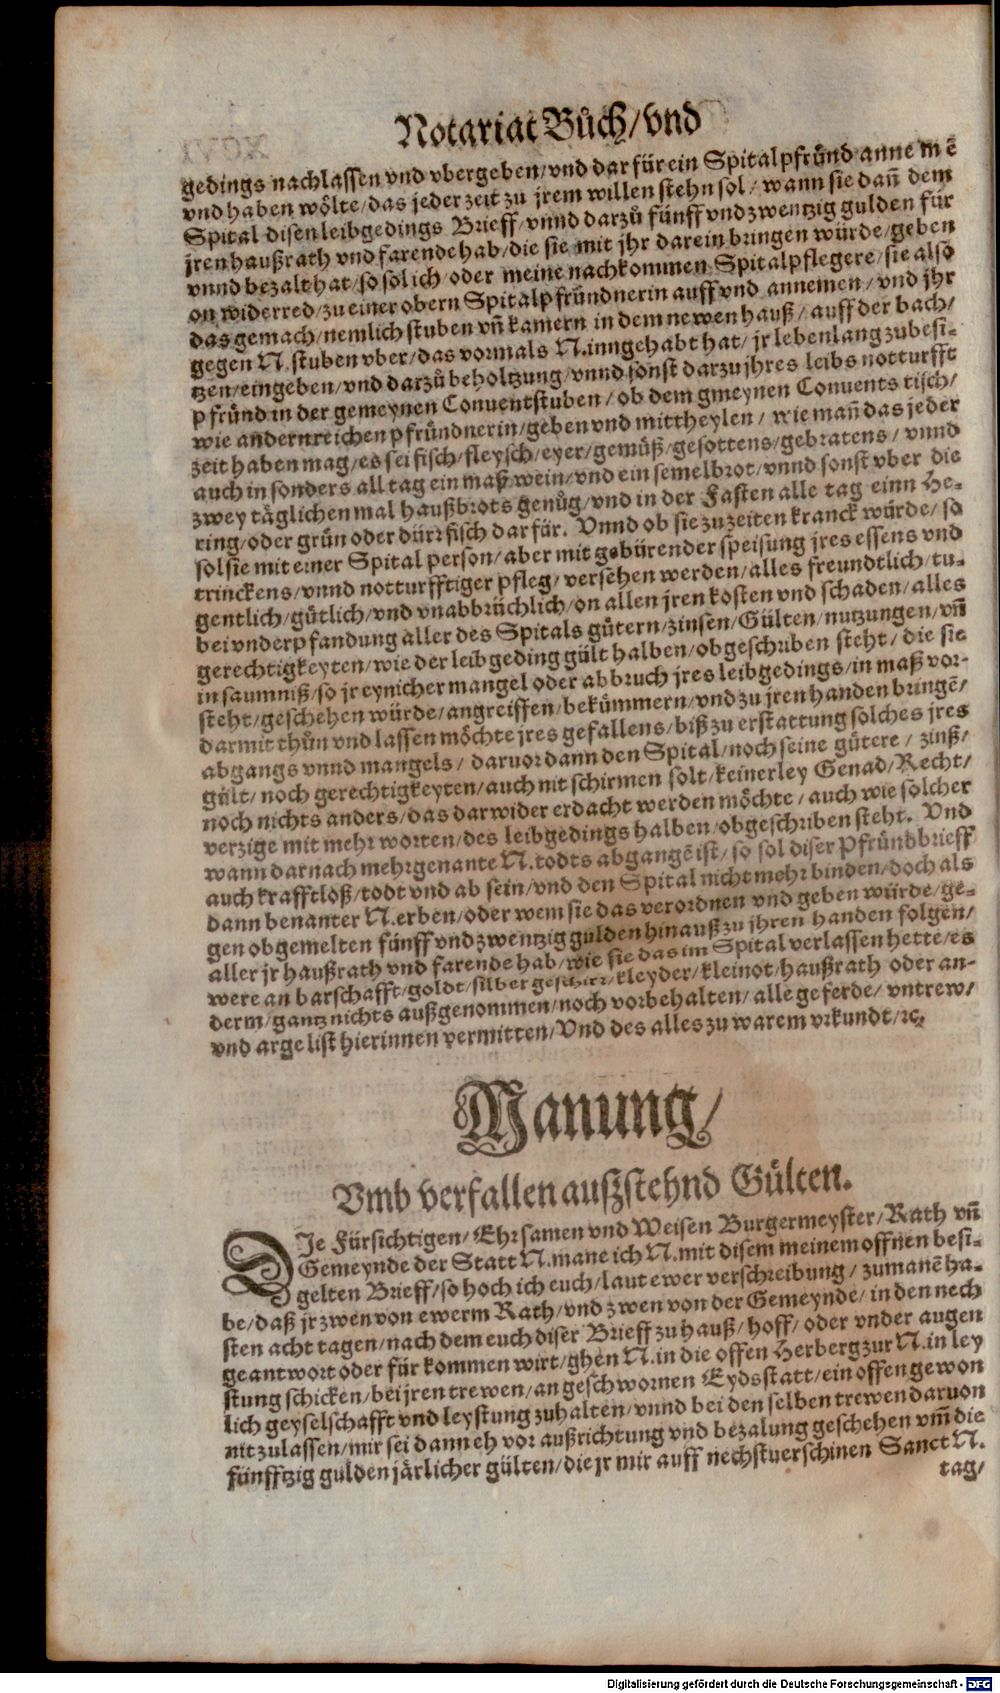 Notariat Bůch/ vnd
gedings nachlassen vnd vbergeben/ vnd dar für ein Spitalpfründ anne mẽ
vnd haben wölte/ das jeder zeit zu jrem willen stehn sol/ wann sie dañ dem
Spital disen leibgedings Brieff/ vnnd darzů fünff vnd zwentzig gulden für
jren haußrath vnd farende hab/ die sie mit jhr darein bringen würde/ geben
vnnd bezalt hat/ so sol ich/ oder meine nachkommen Spitalpflegere/ sie also
on widerred/ zu einer obern Spitalpfründnerin auff vnd annemen/ vnd jhr
das gemach/ nemlich stuben vñ kamern in dem newen hauß/ auff der bach/
gegen N. stuben vber/ das vormals N. inngehabt hat/ jr lebenlang zubesi-
tzen/ eingeben/ vnd darzů beholtzung/ vnnd sonst darzu jhres leibs notturfft
pfründ in der gemeynen Conuentstuben/ ob dem gmeynen Conuents tisch/
wie andern reichen pfründnerin/ geben vnd mittheylen/ wie mañ das jeder
zeit haben mag/ es sei fisch/ fleysch/ eyer/ gemüß/ gesottens/ gebratens/ vnnd
auch in sonders all tag ein maß wein/ vnd ein semelbrot/ vnnd sonst vber die
zwey täglichen mal haußbrots genůg/ vnd in der Fasten alle tag einn He-
ring/ oder grün oder dürr fisch dar für. Vnnd ob sie zu zeiten kranck würde/ so
sol sie mit einer Spital person/ aber mit gebürender speisung jres essens vnd
trinckens/ vnnd notturfftiger pfleg/ versehen werden/ alles freundtlich/ tu-
gentlich/ gütlich/ vnd vnabbrüchlich/ on allen jren kosten vnd schaden/ alles
bei vnderpfandung aller des Spitals gütern/ zinsen/ Gülten/ nutzungen/ vñ
gerechtigkeyten/ wie der leibgeding gült halben/ obgeschriben steht/ die sie
in saumniß/ so jr eynicher mangel oder abbruch jres leibgedings/ in maß vor-
steht/ geschehen würde/ angreiffen/ bekümmern/ vnd zu jren handen bringẽ/
darmit thůn vnd lassen möchte jres gefallens/ biß zu erstattung solches jres
abgangs vnnd mangels/ daruor dann den Spital/ noch seine gütere/ zinß/
gült/ noch gerechtigkeyten/ auch nit schirmen solt/ keinerley Genad/ Recht/
noch nichts anders/ das darwider erdacht werden möchte/ auch wie solcher
verzige mit mehr worten/ des leibgedings halben/ obgeschriben steht. Vnd
wann darnach mehrgenante N. todts abgangẽ ist/ so sol diser Pfründbrieff
auch krafftloß/ todt vnd ab sein/ vnd den Spital nicht mehr binden/ doch als
dann benanter N. erben/ oder wem sie das verordnen vnd geben würde/ ge-
gen obgemelten fünff vnd zwentzig gulden hinauß zu jhren handen folgen/
aller jr haußrath vnd farende hab/ wie sie das im Spital verlassen hette/ es
were an barschafft/ goldt/ silber geschirr/ kleyder/ kleinot/ haußrath oder an-
derm/ gantz nichts außgenommen/ noch vorbehalten/ alle geferde/ vntrew/
vnd arge list hierinnen vermitten/ Vnd des alles zu warem vrkundt/ ꝛc.
Manung/
Vmb verfallen außstehnd Gülten.
DIe Fürsichtigen/ Ehrsamen vnd Weisen Burgermeyster/ Rath vñ
Gemeynde der Statt N. mane ich N. mit disem meinem offnen besi-
gelten Brieff/ so hoch ich euch/ laut ewer verschreibung/ zumanẽ ha-
be/ daß jr zwen von ewerm Rath/ vnd zwen von der Gemeynde/ in den nech
sten acht tagen/ nach dem euch diser Brieff zu hauß/ hoff/ oder vnder augen
geantwort oder für kommen wirt/ ghen N. in die offen Herberg zur N. in ley
stung schicken/ bei jren trewen/ an geschwornen Eydsstatt/ ein offen gewon
lich geyselschafft vnd leystung zuhalten/ vnnd bei den selben trewen daruon
nit zulassen/ mir sei dann eh vor außrichtung vnd bezalung geschehen vm̃ die
fünfftzig gulden järlicher gülten/ die jr mir auff nechstuerschinen Sanct N.
tag/
Digitalisierung gefördert durch die Deutsche Forschungsgemeinschaft - DFG